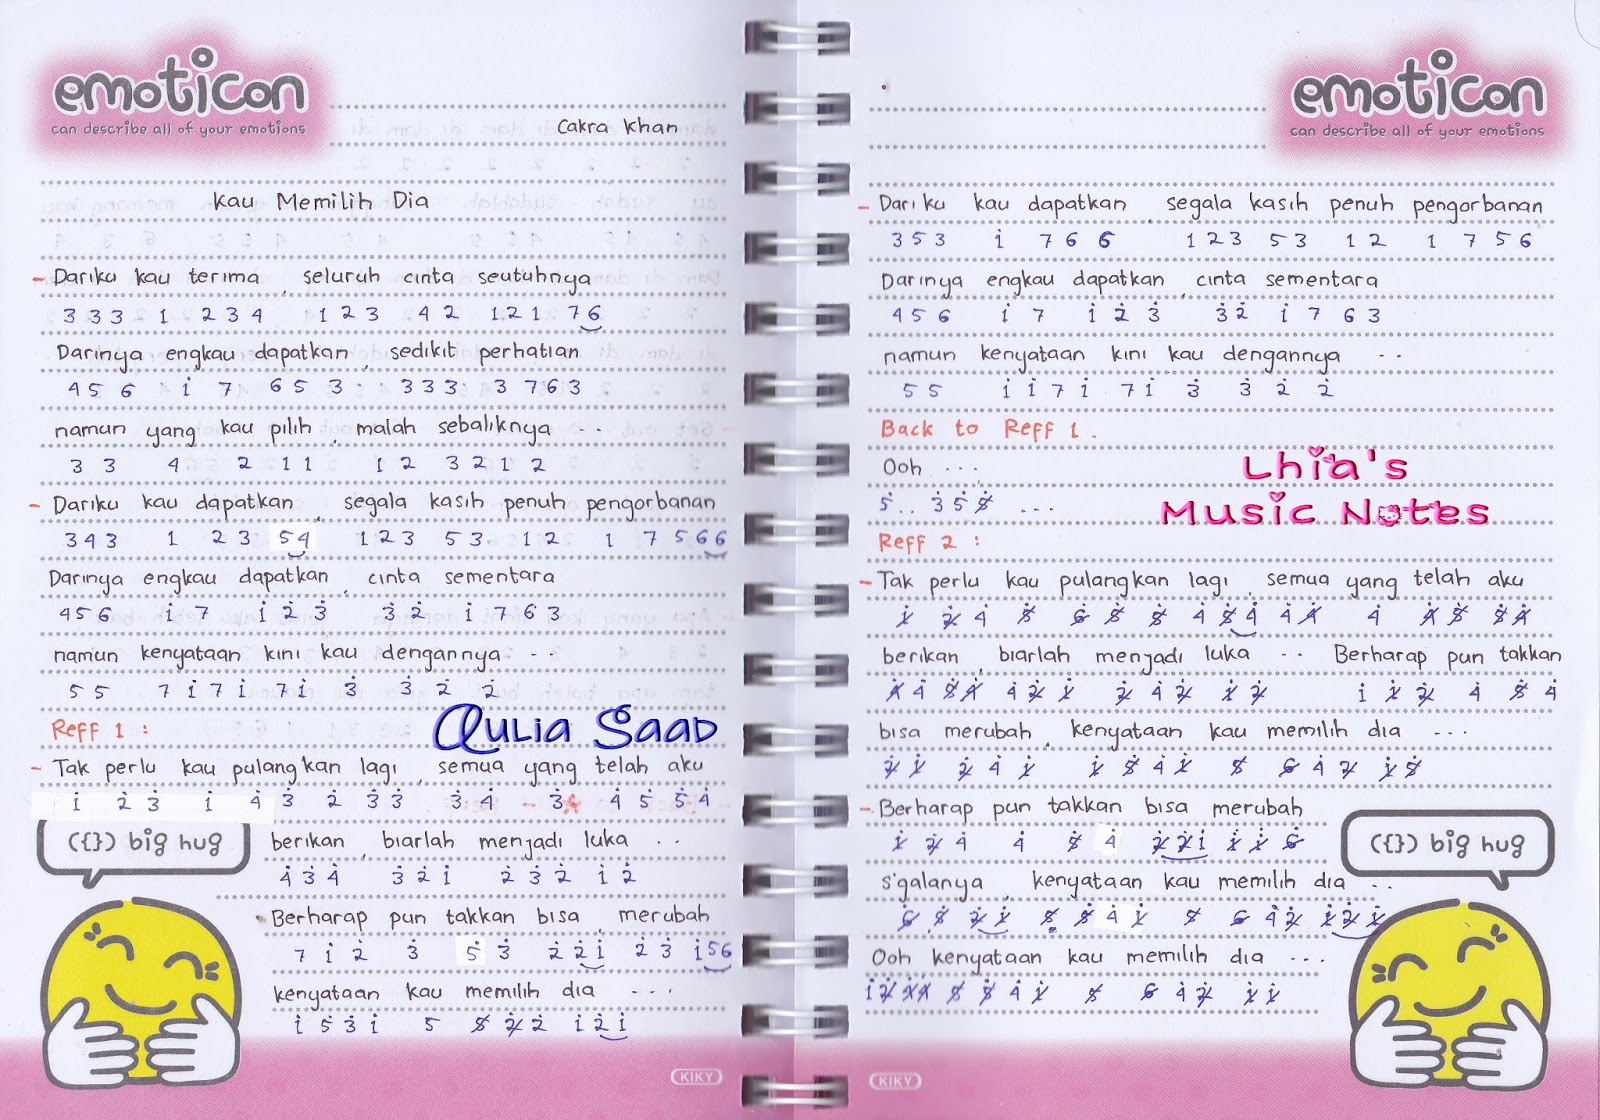 emoticon
can describe all of your emotions
Cakra Khan
Kau Memilih Dia
- Dariku kau terima, seluruh cinta seutuhnya
3 3 3 1 2 3 4 1 2 3 4 2 1 2 1 7 6
Darinya engkau dapatkan, sedikit perhatian
4 5 6 i 7 6 5 3 . 3 3 3 3 7 6 3
namun yang kau pilih, malah sebaliknya ..
3 3 4 2 1 1 1 2 3 2 1 2
- Dariku kau dapatkan, segala kasih penuh pengorbanan
3 4 3 1 2 3 5 4 1 2 3 5 3 1 2 1 7 5 6 6
Darinya engkau dapatkan, cinta sementara
4 5 6 i 7 i 2̇ 3̇ 3̇ 2̇ i 7 6 3
namun kenyataan kini kau dengannya ..
5 5 7 i 7 i 7 i 3̇ 3̇ 2̇ 2̇
Reff 1 :
Qulia Saad
- Tak perlu kau pulangkan lagi, semua yang telah aku
i 2̇ 3̇ i 4̇ 3̇ 2̇ 3̇ 3̇ 3̇ 4̇ 3̇ 4̇ 5̇ 5̇ 4̇
({}) big hug
berikan, biarlah menjadi luka ..
4̇ 3̇ 4̇ 3̇ 2̇ i 2̇ 3̇ 2̇ i 2̇
• Berharap pun takkan bisa, merubah
7 i 2̇ 3̇ 5̇ 3̇ 2̇ 2̇ i 2̇ 3̇ i 5 6
kenyataan kau memilih dia ....
i 5̇ 3̇ i 5 2̇ i 2̇ i
KIKY
emoticon
can describe all of your emotions
- Dariku kau dapatkan, segala kasih penuh pengorbanan
3 5 3 i 7 6 6 1 2 3 5 3 1 2 1 7 5 6
Darinya engkau dapatkan, cinta sementara
4 5 6 i 7 i 2̇ 3̇ 3̇ 2̇ i 7 6 3
namun kenyataan kini kau dengannya ..
5 5 i i 7 i 7 i 3̇ 3̇ 2̇ 2̇
Back to Reff 1.
Ooh ....
5̇ .. 3̇ 5̇ ...
Lhia's
Music Notes
Reff 2 :
- Tak perlu kau pulangkan lagi, semua yang telah aku
berikan, biarlah menjadi luka .. Berharap pun takkan
bisa merubah, kenyataan kau memilih dia ...
- Berharap pun takkan bisa merubah
({}) big hug
s'galanya, kenyataan kau memilih dia ..
Ooh kenyataan kau memilih dia ...
KIKY